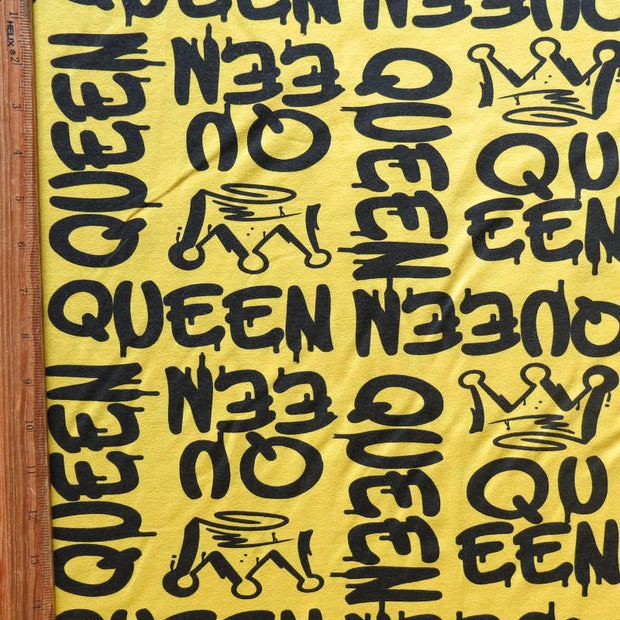 HELIX
2
3
4
5
6
7
8
9
10
11
12
13
QUEEN
QUEEN
QU
EEN
QUEEN
QU
EEN
QUEEN
QUEEN
QUEEN
QU
EEN
QUEEN
QU
EEN
QUEEN